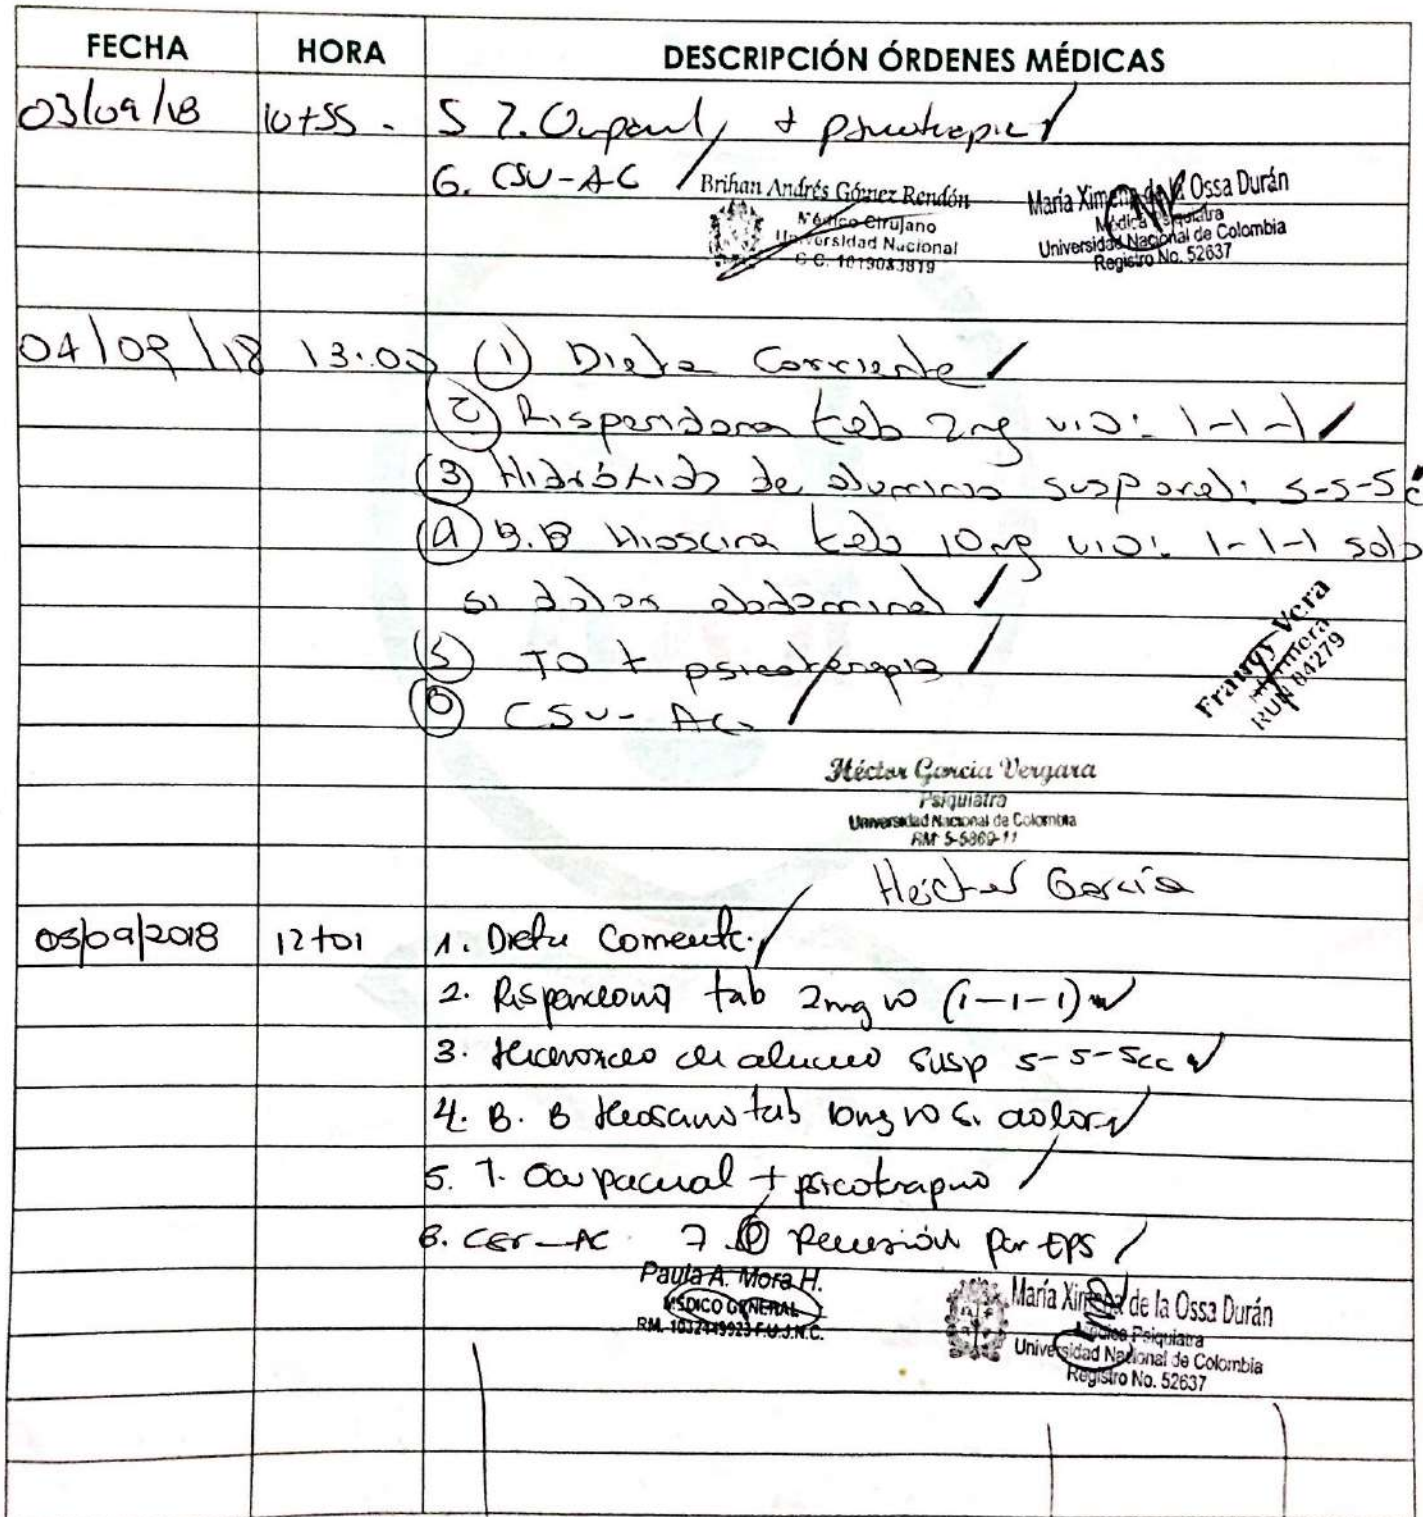 FECHA HORA DESCRIPCIÓN ÓRDENES MÉDICAS
03/09/18 10+55 - 5 T. Ocupacional + psicoterapia
6. CSV-AC
Brihan Andrés Gómez Rendón
Médico Cirujano
Universidad Nacional
C.C. 1019083819
María Ximena de la Ossa Durán
Médica Psiquiatra
Universidad Nacional de Colombia
Registro No. 52637
04/09/18 13:00 (1) Dieta Corriente
(2) Risperidona tab 2mg v.o: 1-1-1
(3) Hidróxido de aluminio susp oral: 5-5-5
(4) B.B Hioscina tab 10mg v.o: 1-1-1 solo
si dolor abdominal
(5) TO + psicoterapia
(6) CSV- AC
Frangy Vera
Enfermera
RUN 84279
Héctor García Vergara
Psiquiatra
Universidad Nacional de Colombia
RM: 5-5860-11
Héctor García
05/09/2018 12+01 1. Dieta Corriente.
2. Risperidona tab 2mg vo (1-1-1)
3. Hidroxido de aluminio susp 5-5-5cc
4. B. B Hioscina tab 10mg vo si dolor
5. T. Ocupacional + psicoterapia
6. CSV-AC. 7. Remisión por EPS
Paula A. Mora H.
MÉDICO GENERAL
RM. 1032449923 F.U.J.N.C.
María Ximena de la Ossa Durán
Médica Psiquiatra
Universidad Nacional de Colombia
Registro No. 52637